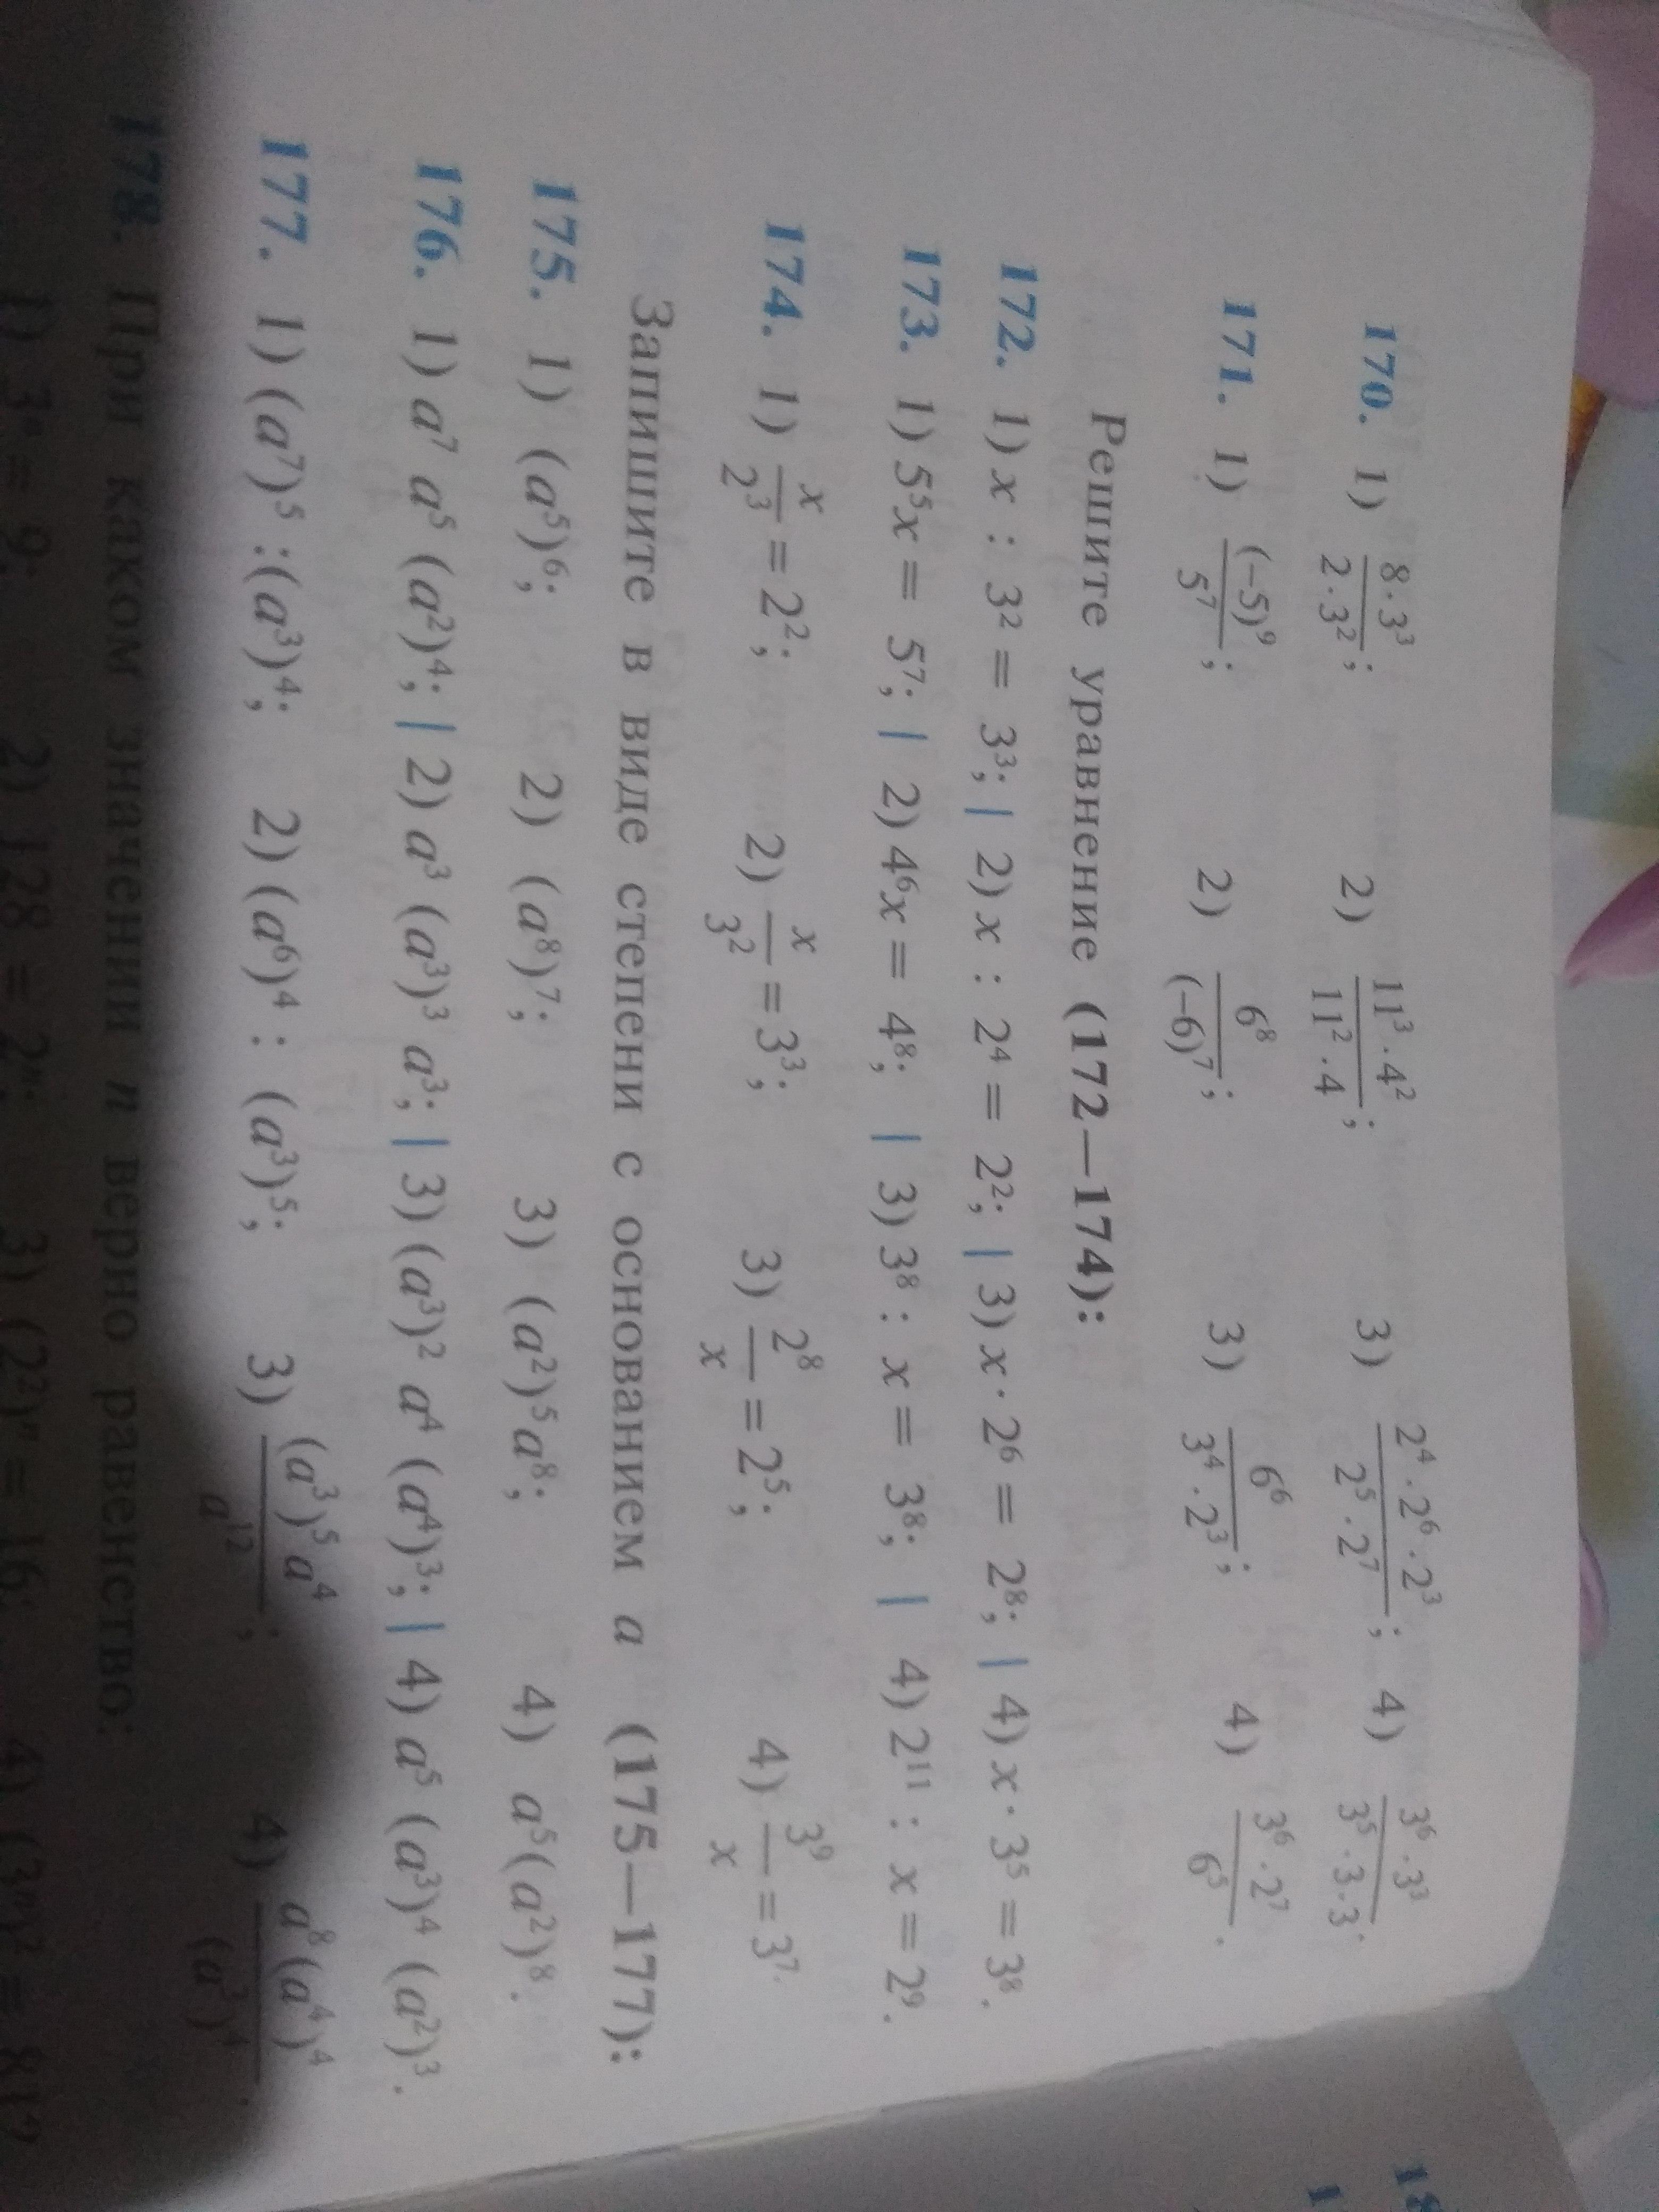 170. 1) (8 · 3³)/(2 · 3²); 2) (11³ · 4²)/(11² · 4); 3) (2⁴ · 2⁶ · 2³)/(2⁵ · 2⁷); 4) (3⁶ · 3³)/(3⁵ · 3 · 3).
171. 1) (−5)⁹/5⁷; 2) 6⁸/(−6)⁷; 3) 6⁶/(3⁴ · 2³); 4) (3⁶ · 2⁷)/6⁵.
Решите уравнение (172—174):
172. 1) x : 3² = 3³; | 2) x : 2⁴ = 2²; | 3) x · 2⁶ = 2⁸; | 4) x · 3⁵ = 3⁸.
173. 1) 5⁵x = 5⁷; | 2) 4⁶x = 4⁸; | 3) 3⁸ : x = 3⁸; | 4) 2¹¹ : x = 2⁹.
174. 1) x/2³ = 2²; 2) x/3² = 3³; 3) 2⁸/x = 2⁵; 4) 3⁹/x = 3⁷.
Запишите в виде степени с основанием a (175—177):
175. 1) (a⁵)⁶; 2) (a⁸)⁷; 3) (a²)⁵a⁸; 4) a⁵(a²)⁸.
176. 1) a⁷ a⁵ (a²)⁴; | 2) a³ (a³)³ a³; | 3) (a³)² a⁴ (a⁴)³; | 4) a⁵ (a³)⁴ (a²)³.
177. 1) (a⁷)⁵ : (a³)⁴; 2) (a⁶)⁴ : (a³)⁵; 3) ((a³)⁵a⁴)/a¹²; 4) (a⁸(a⁴)⁴)/(a³)⁴.
178. При каком значении n верно равенство:
1) 3ⁿ = 9; 2) 128 = 2ⁿ; 3) (2²)ⁿ = 16; 4) (3ⁿ)² = 81?
18
1